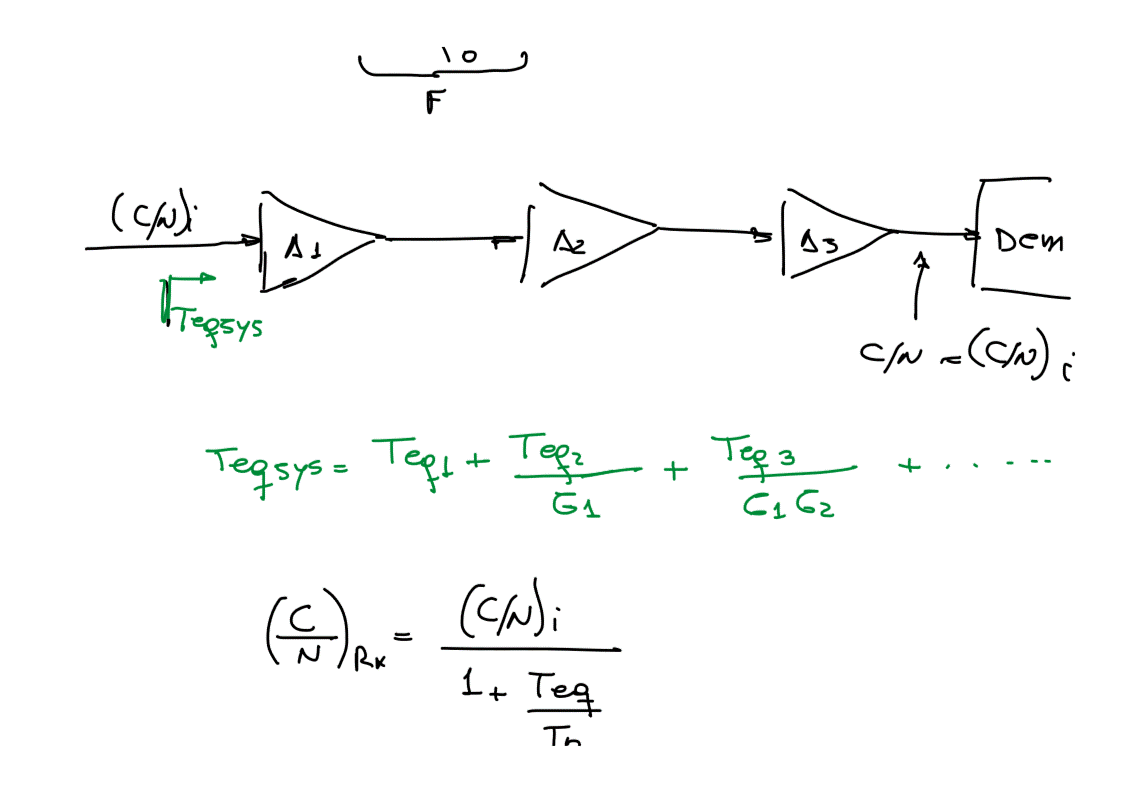 10
F
(C/N)i
A1
A2
A3
Dem
Teqsys
C/N = (C/N)i
Teqsys = Teq1 + Teq2/G1 + Teq3/G1G2 + .....
(C/N)Rx = (C/N)i / 1 + Teq/Tn